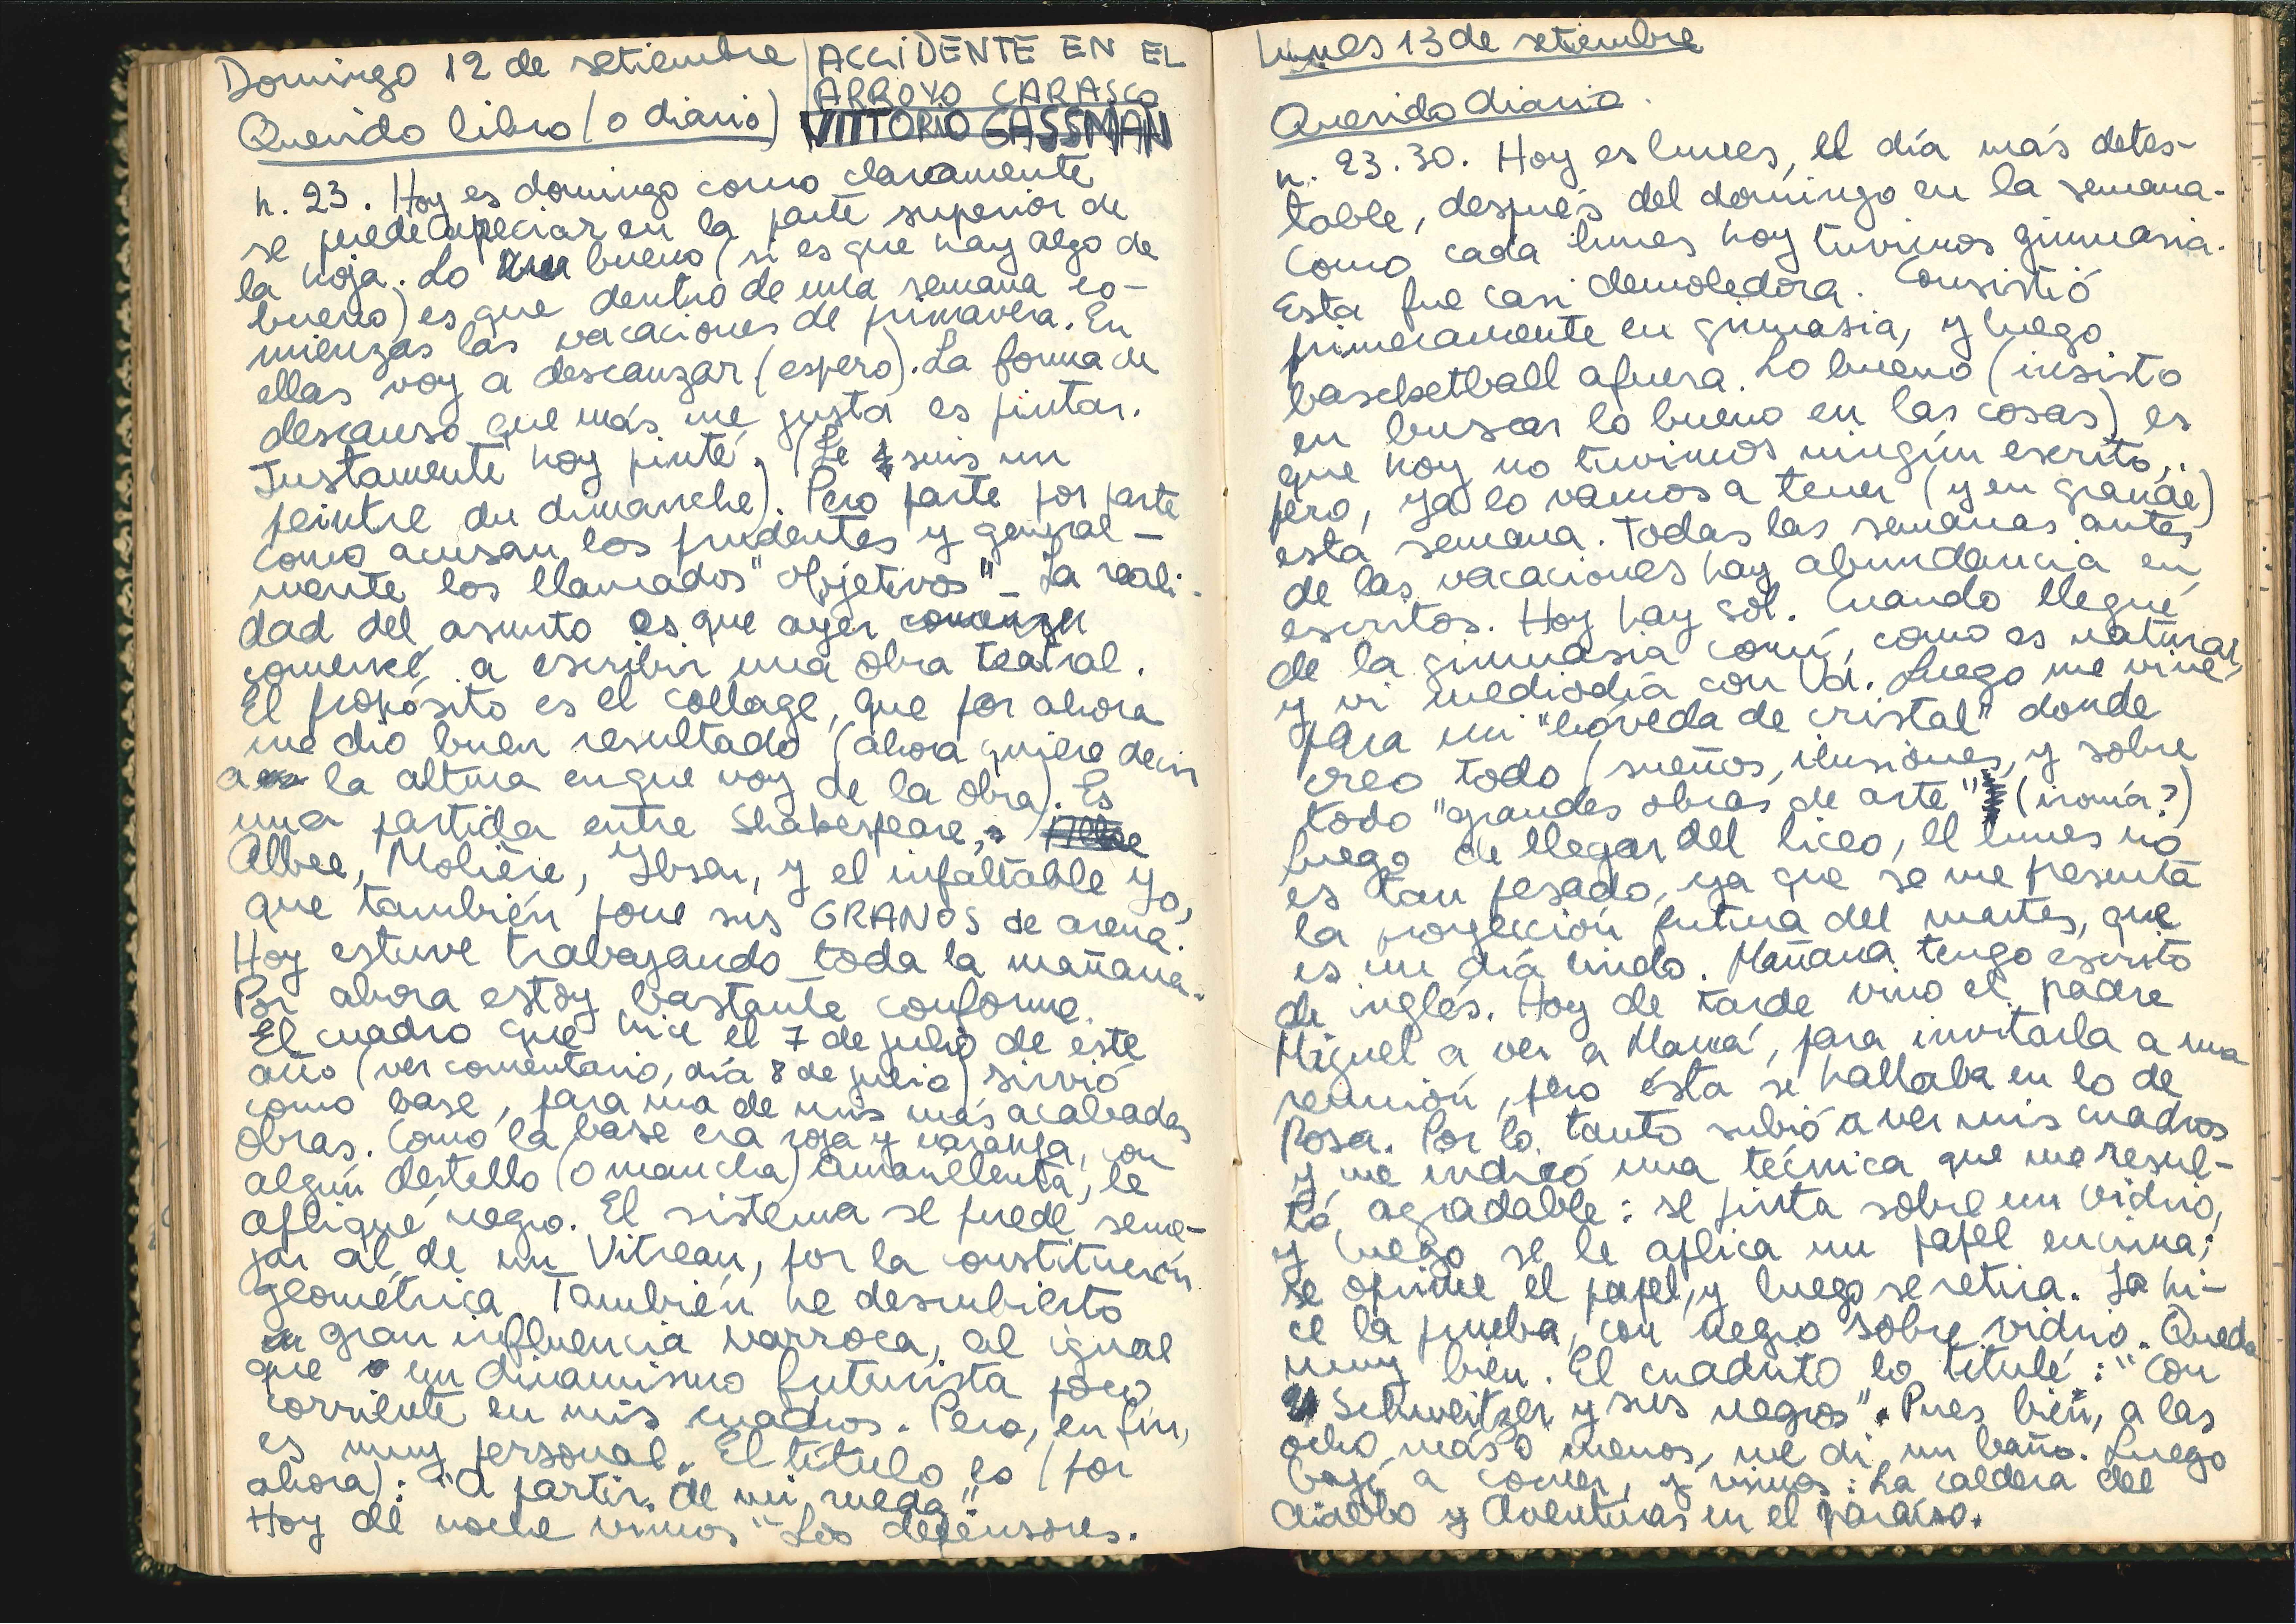 Domingo 12 de setiembre
ACCIDENTE EN EL
ARROYO CARASCO
Querido libro (o diario)
VITTORIO GASSMAN
h. 23. Hoy es domingo como claramente
se puede apreciar en la parte superior de
la hoja. Lo bueno (si es que hay algo de
bueno) es que dentro de una semana co-
mienzas las vacaciones de primavera. En
ellas voy a descanzar (espero). La forma de
descanso que más me gusta es pintar.
Justamente hoy pinté. (Le suis un
peintre du dimanche). Pero parte por parte
como acusan los prudentes y general-
mente los llamados "objetivos" - La reali-
dad del asunto es que ayer comenzu
comencé a escribir una obra teatral.
El propósito es el collage, que por ahora
me dio buen resultado (ahora quiere decir
a la altura en que voy de la obra). Es
una partida entre Shakespeare,
Albee, Molière, Ybsen, y el infaltable yo,
que también pone sus GRANOS de arena.
Hoy estuve trabajando toda la mañana.
Por ahora estoy bastante conforme.
El cuadro que hice el 7 de julio de este
año (ver comentario, día 8 de julio) sirvió
como base, para una de mis más acabadas
obras. Como la base era roja y naranja, con
algún destello (o mancha) amarillenta, le
apliqué negro. El sistema se puede seme-
jar al de un Vitreau, por la constitución
geométrica. También he descubierto
gran influencia varroca, al igual
que un dinamismo futurista poco
corriente en mis cuadros. Pero, en fin,
es muy personal. El título es (por
ahora): "A partir de mi rueda"
Hoy de noche vimos "Los defensores.
Lunes 13 de setiembre
Querido diario.
h. 23.30. Hoy es lunes, el día más detes-
table, después del domingo en la semana.
Como cada lunes hoy tuvimos gimnasia.
Esta fue casi demoledora. Consistió
primeramente en gimnasia, y luego
bascketball afuera. Lo bueno (insisto
en buscar lo bueno en las cosas) es
que hoy no tuvimos ningún escrito,
pero, ya lo vamos a tener (y en grande)
esta semana. Todas las semanas antes
de las vacaciones hay abundancia en
escritos. Hoy hay sol. Cuando llegué
de la gimnasia comí, como es natural,
y vi mediodía con Vd. Luego me vine
para mi "bóveda de cristal" donde
creo todo (sueños, ilusiones, y sobre
todo "grandes obras de arte" (ironía?)
Luego de llegar del liceo, el lunes no
es tan pesado, ya que se me presenta
la proyección futura del martes, que
es un día lindo. Mañana tengo escrito
de inglés. Hoy de tarde vino el padre
Miguel a ver a Mamá, para invitarla a una
reunión, pero ésta se hallaba en lo de
Rosa. Por lo tanto subió a ver mis cuadros
y me indicó una técnica que me resul-
tó agradable: se pinta sobre un vidrio,
y luego se le aplica un papel encima;
se oprime el papel, y luego se retira. Ja hi-
ce la prueba, con negro sobre vidrio. Queda
muy bien. El cuadrito lo titulé: "Con
Schweitzer y sus negros". Pues bien, a las
ocho más o menos, me di un baño. Luego
bajé a comer, y vimos: La caldera del
diablo y Aventuras en el paraíso.